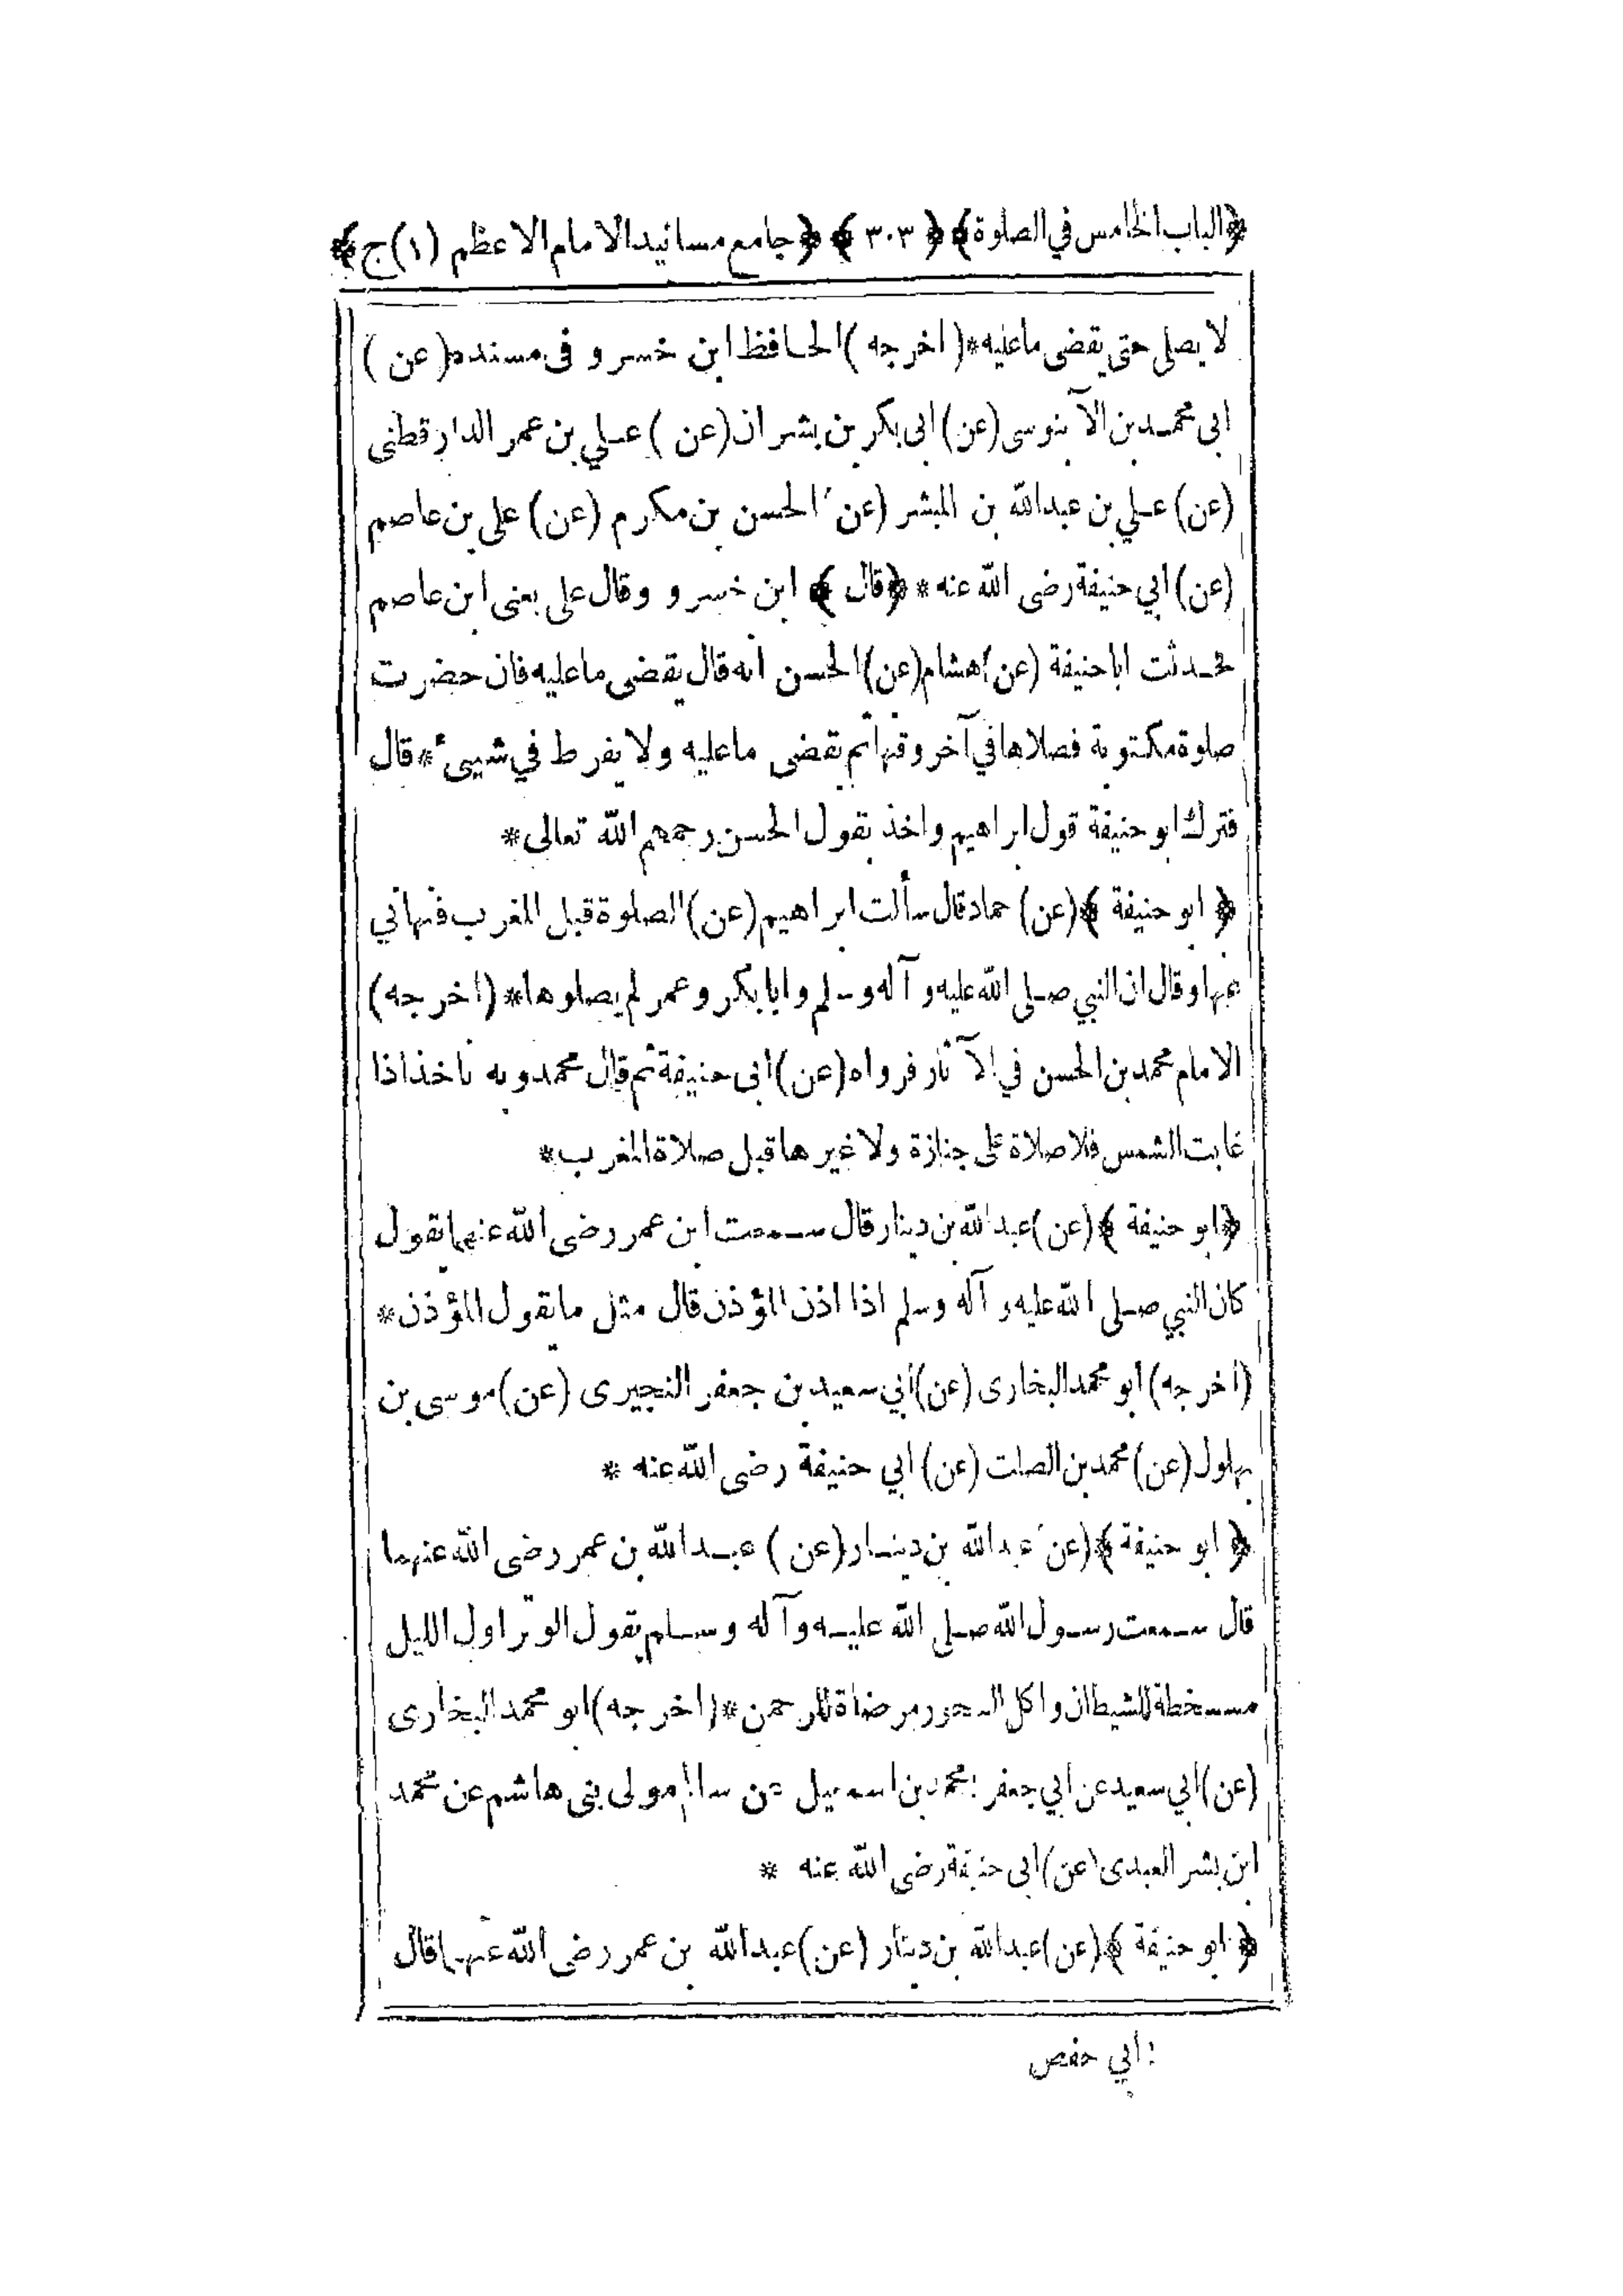 ﴿الباب الخامس في الصلوة﴾ ﴿٣٠٣﴾ ﴿جامع مسانيد الامام الاعظم (١) ج﴾
لا يصلى حتى يقضى ما عليه * (اخرجه) الحافظ ابن خسرو فى مسنده (عن)
ابى محمد بن الآبنوسى (عن) ابى بكر بن بشران (عن) علي بن عمر الدارقطنى
(عن) علي بن عبدالله بن المبشر (عن الحسن بن مكرم (عن) على بن عاصم
(عن) ابي حنيفة رضى الله عنه * ﴿قال﴾ ابن خسرو وقال على يعنى ابن عاصم
فحدثت ابا حنيفة (عن) هشام (عن) الحسن انه قال يقضى ما عليه فان حضرت
صلوة مكتوبة فصلاها في آخر وقتها ثم يقضى ما عليه ولا يفرط في شيئ * قال
فترك ابو حنيفة قول ابراهيم واخذ بقول الحسن رحمهم الله تعالى *
﴿ابو حنيفة﴾ (عن) حماد قال سألت ابراهيم (عن) الصلوة قبل المغرب فنهاني
عنها وقال ان النبي صلى الله عليه وآله وسلم وابا بكر وعمر لم يصلوها * (اخرجه)
الامام محمد بن الحسن في الآثار فرواه (عن) ابى حنيفة ثم قال محمد وبه ناخذ اذا
غابت الشمس فلا صلاة على جنازة ولا غيرها قبل صلاة المغرب *
﴿ابو حنيفة﴾ (عن) عبدالله بن دينار قال سمعت ابن عمر رضى الله عنهما يقول
كان النبي صلى الله عليه وآله وسلم اذا اذن المؤذن قال مثل ما يقول المؤذن *
(اخرجه) ابو محمد البخارى (عن) أبي سعيد بن جعفر النجيرى (عن) موسى بن
بهلول (عن) محمد بن الصلت (عن) ابي حنيفة رضى الله عنه *
﴿ابو حنيفة﴾ (عن عبدالله بن دينار (عن) عبدالله بن عمر رضى الله عنهما
قال سمعت رسول الله صلى الله عليه وآله وسلم يقول الوتر اول الليل
مسخطة للشيطان واكل السحور مرضاة للرحمن * (اخرجه) ابو محمد البخارى
(عن) ابي سعيد عن ابي جعفر: محمد بن اسمعيل عن سالم مولى بنى هاشم عن محمد
ابن بشر العبدى (عن) ابى حنيفة رضى الله عنه *
﴿ابو حنيفة﴾ (عن) عبدالله بن دينار (عن) عبدالله بن عمر رضى الله عنهما قال
: ابي حفص